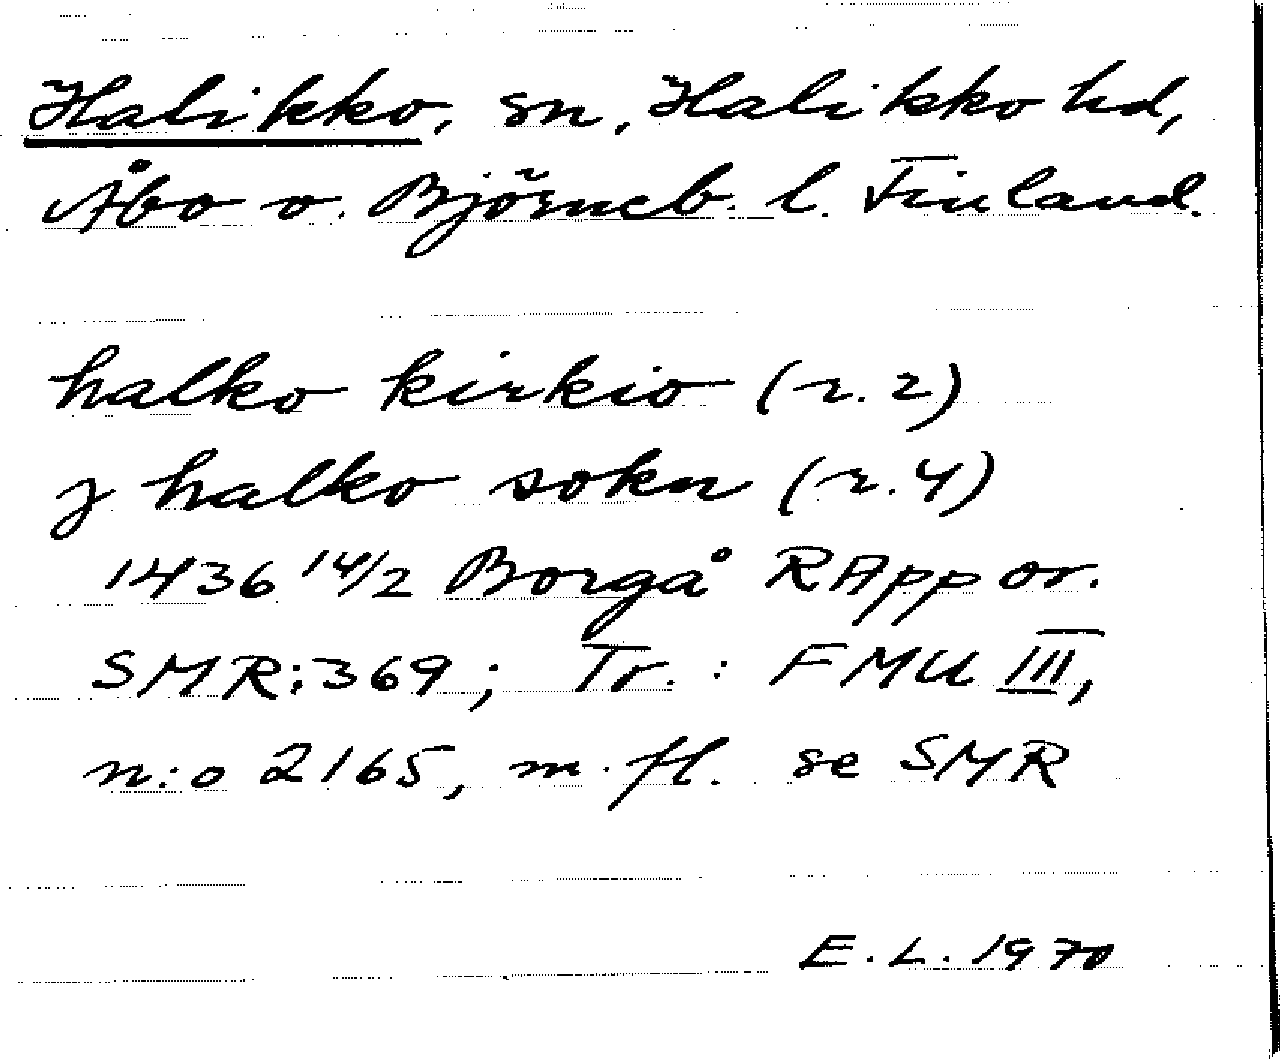 Halikko, sn, Halikko hd,
Åbo o. Björneb. l. Finland.
halko kirkio (r. 2)
j halko sokn (r. 4)
1436 14/2 Borgå RApp or.
SMR: 369; Tr.: FMU III,
n:o 2165, m. fl. se SMR
E. L. 1970